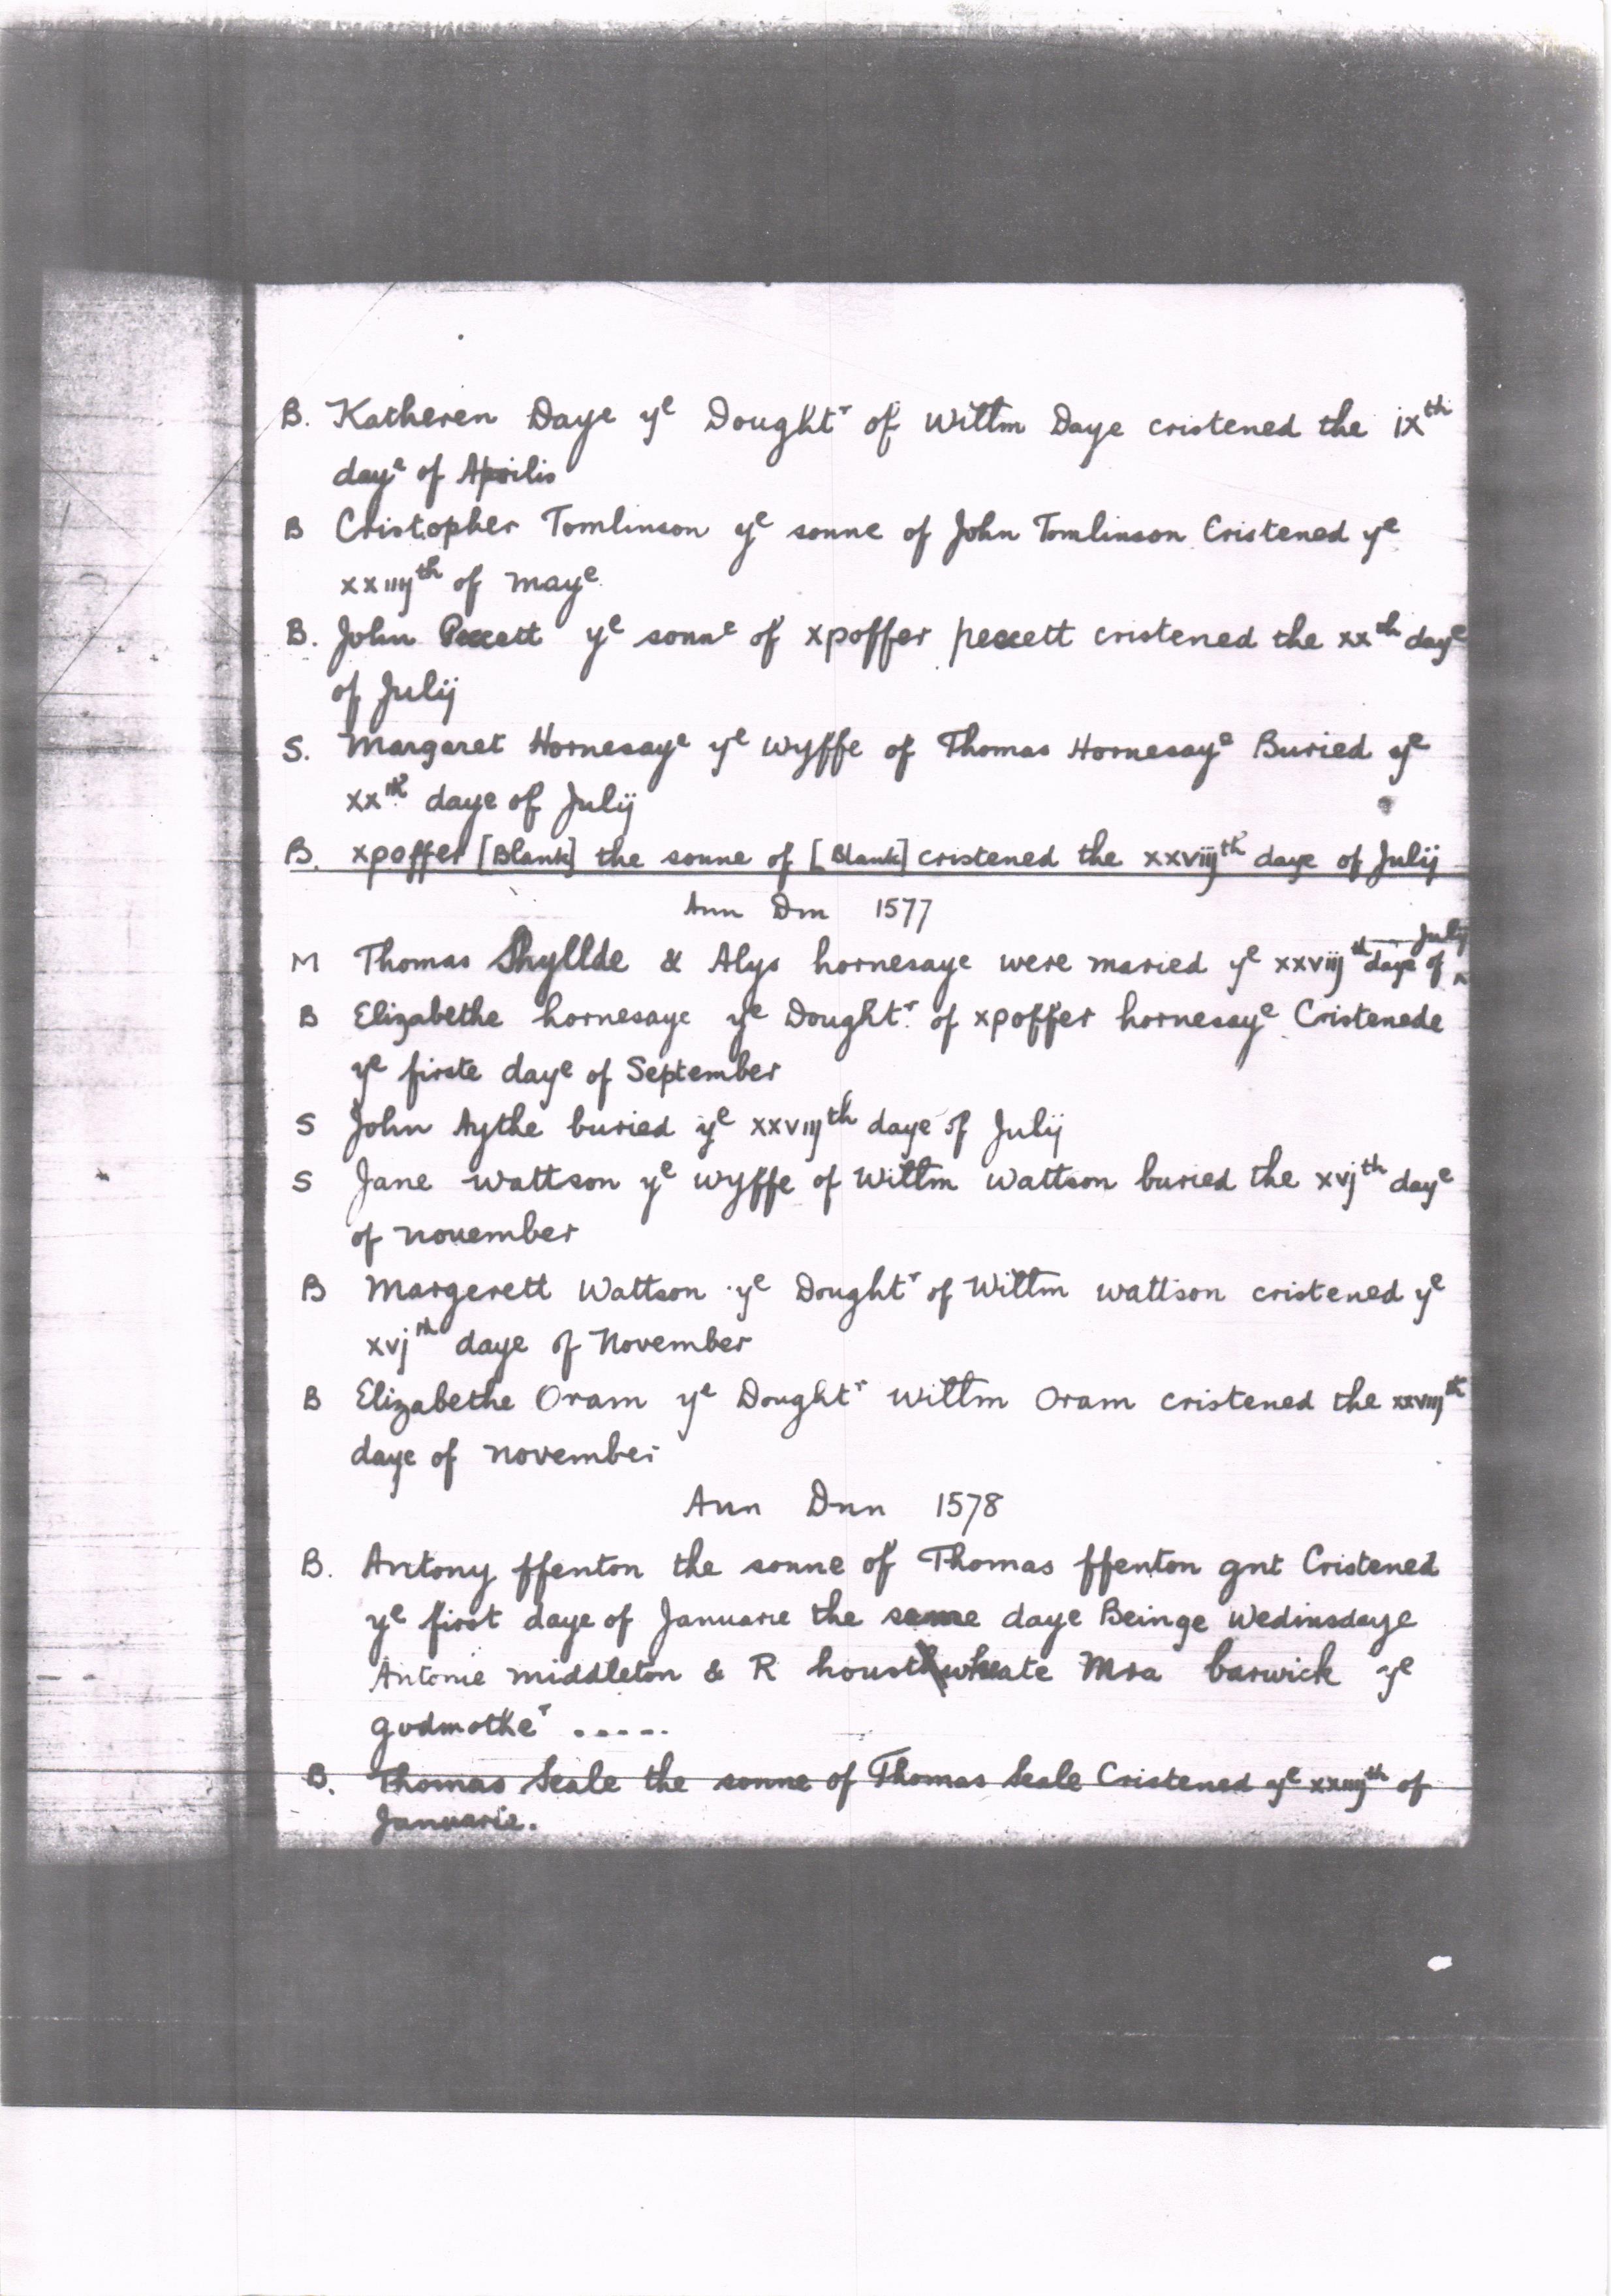 B. Katheren Daye yᵉ Doughtʳ of Willm Daye cristened the ixᵗʰ
dayᵉ of Aprilis
B Cristopher Tomlinson yᵉ sonne of John Tomlinson Cristened yᵉ
xxiiijᵗʰ of mayᵉ
B. John Peccett yᵉ sonnᵉ of xpoffer peccett cristened the xxᵗʰ dayᵉ
of Julij
S. Margaret Hornesayᵉ yᵉ wyffe of Thomas Hornesayᵉ Buried yᵉ
xxᵗʰ daye of Julij
B. xpoffer [Blank] the sonne of [Blank] cristened the xxviijᵗʰ daye of Julij
Ann Dm 1577
M Thomas Shyllde & Alys hornesaye were maried yᵉ xxviijᵗʰ daye of July
B Elizabethe hornesaye yᵉ Doughtʳ of xpoffer hornesayᵉ Cristenede
yᵉ firste dayᵉ of September
S John Aythe buried yᵉ xxviijᵗʰ daye of Julij
S Jane Wattson yᵉ wyffe of Willm Wattson buried the xvjᵗʰ dayᵉ
of november
B Margerett Wattson yᵉ Doughtʳ of Willm wattson cristened yᵉ
xvjᵗʰ daye of November
B Elizabethe Oram yᵉ Doughtʳ Willm Oram cristened the xxviijᵗʰ
daye of november
Ann Dnn 1578
B. Antony ffenton the sonne of Thomas ffenton gnt Cristened
yᵉ first daye of Januarie the same daye Beinge Wedinsdaye
Antonie middleton & R Mrs barwick yᵉ
godmotheʳ .....
B. Thomas Seale the sonne of Thomas Seale Cristened yᵉ xxiiijᵗʰ of
Januarie.